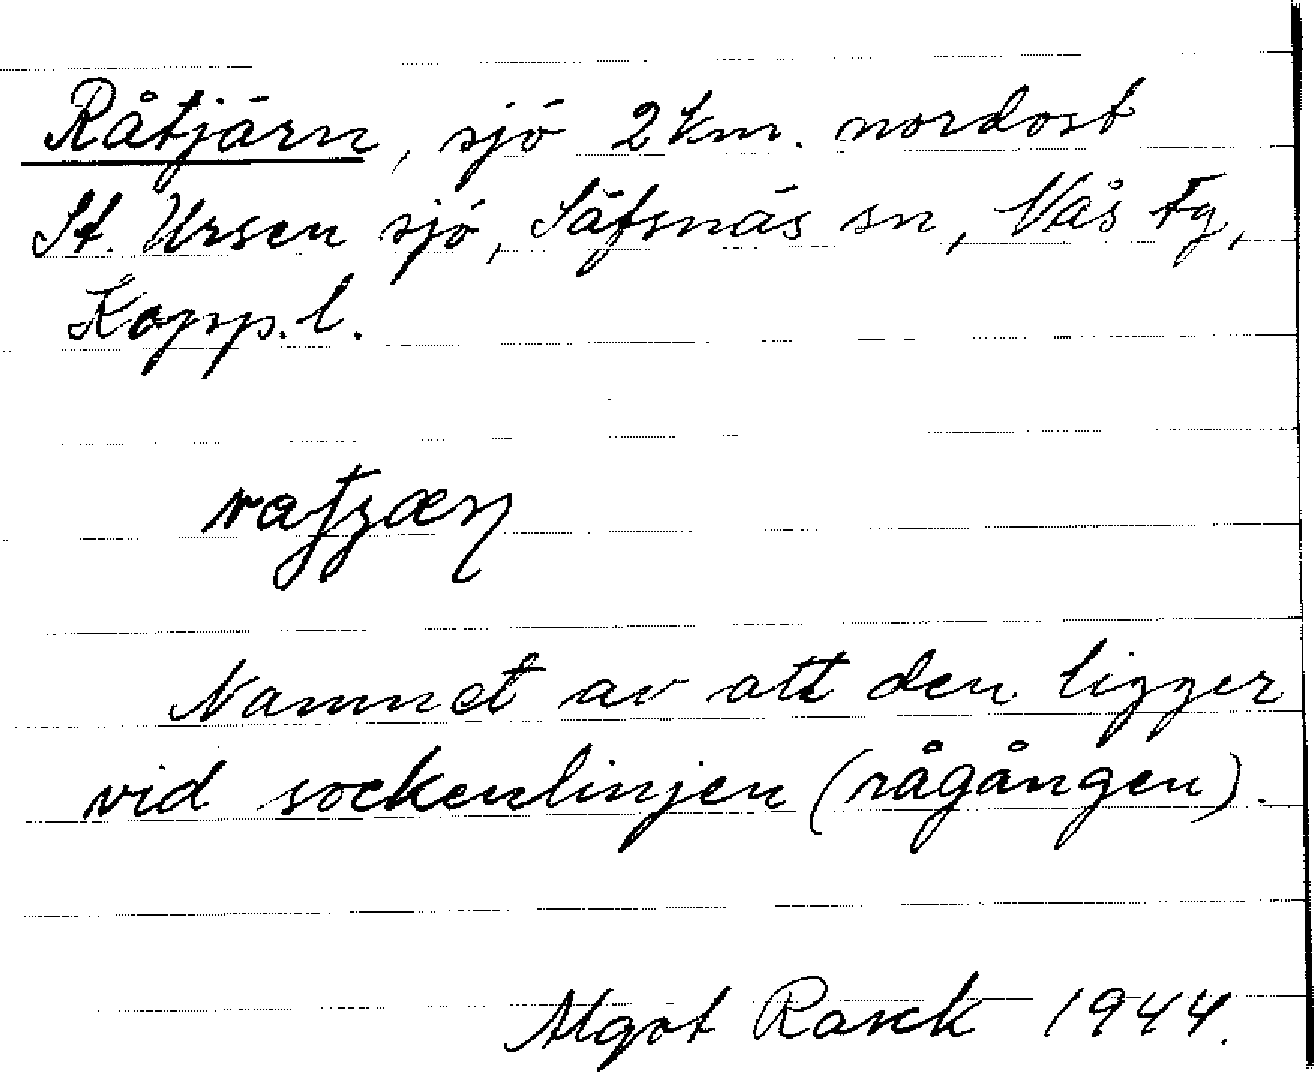 Råtjärn, sjö 2 km. nordost
St. Ursen sjö, Säfsnäs sn, Nås Fg,
Kopp. l.
Namnet av att den ligger
vid sockenlinjen (rågången).
Algot Rask 1944.